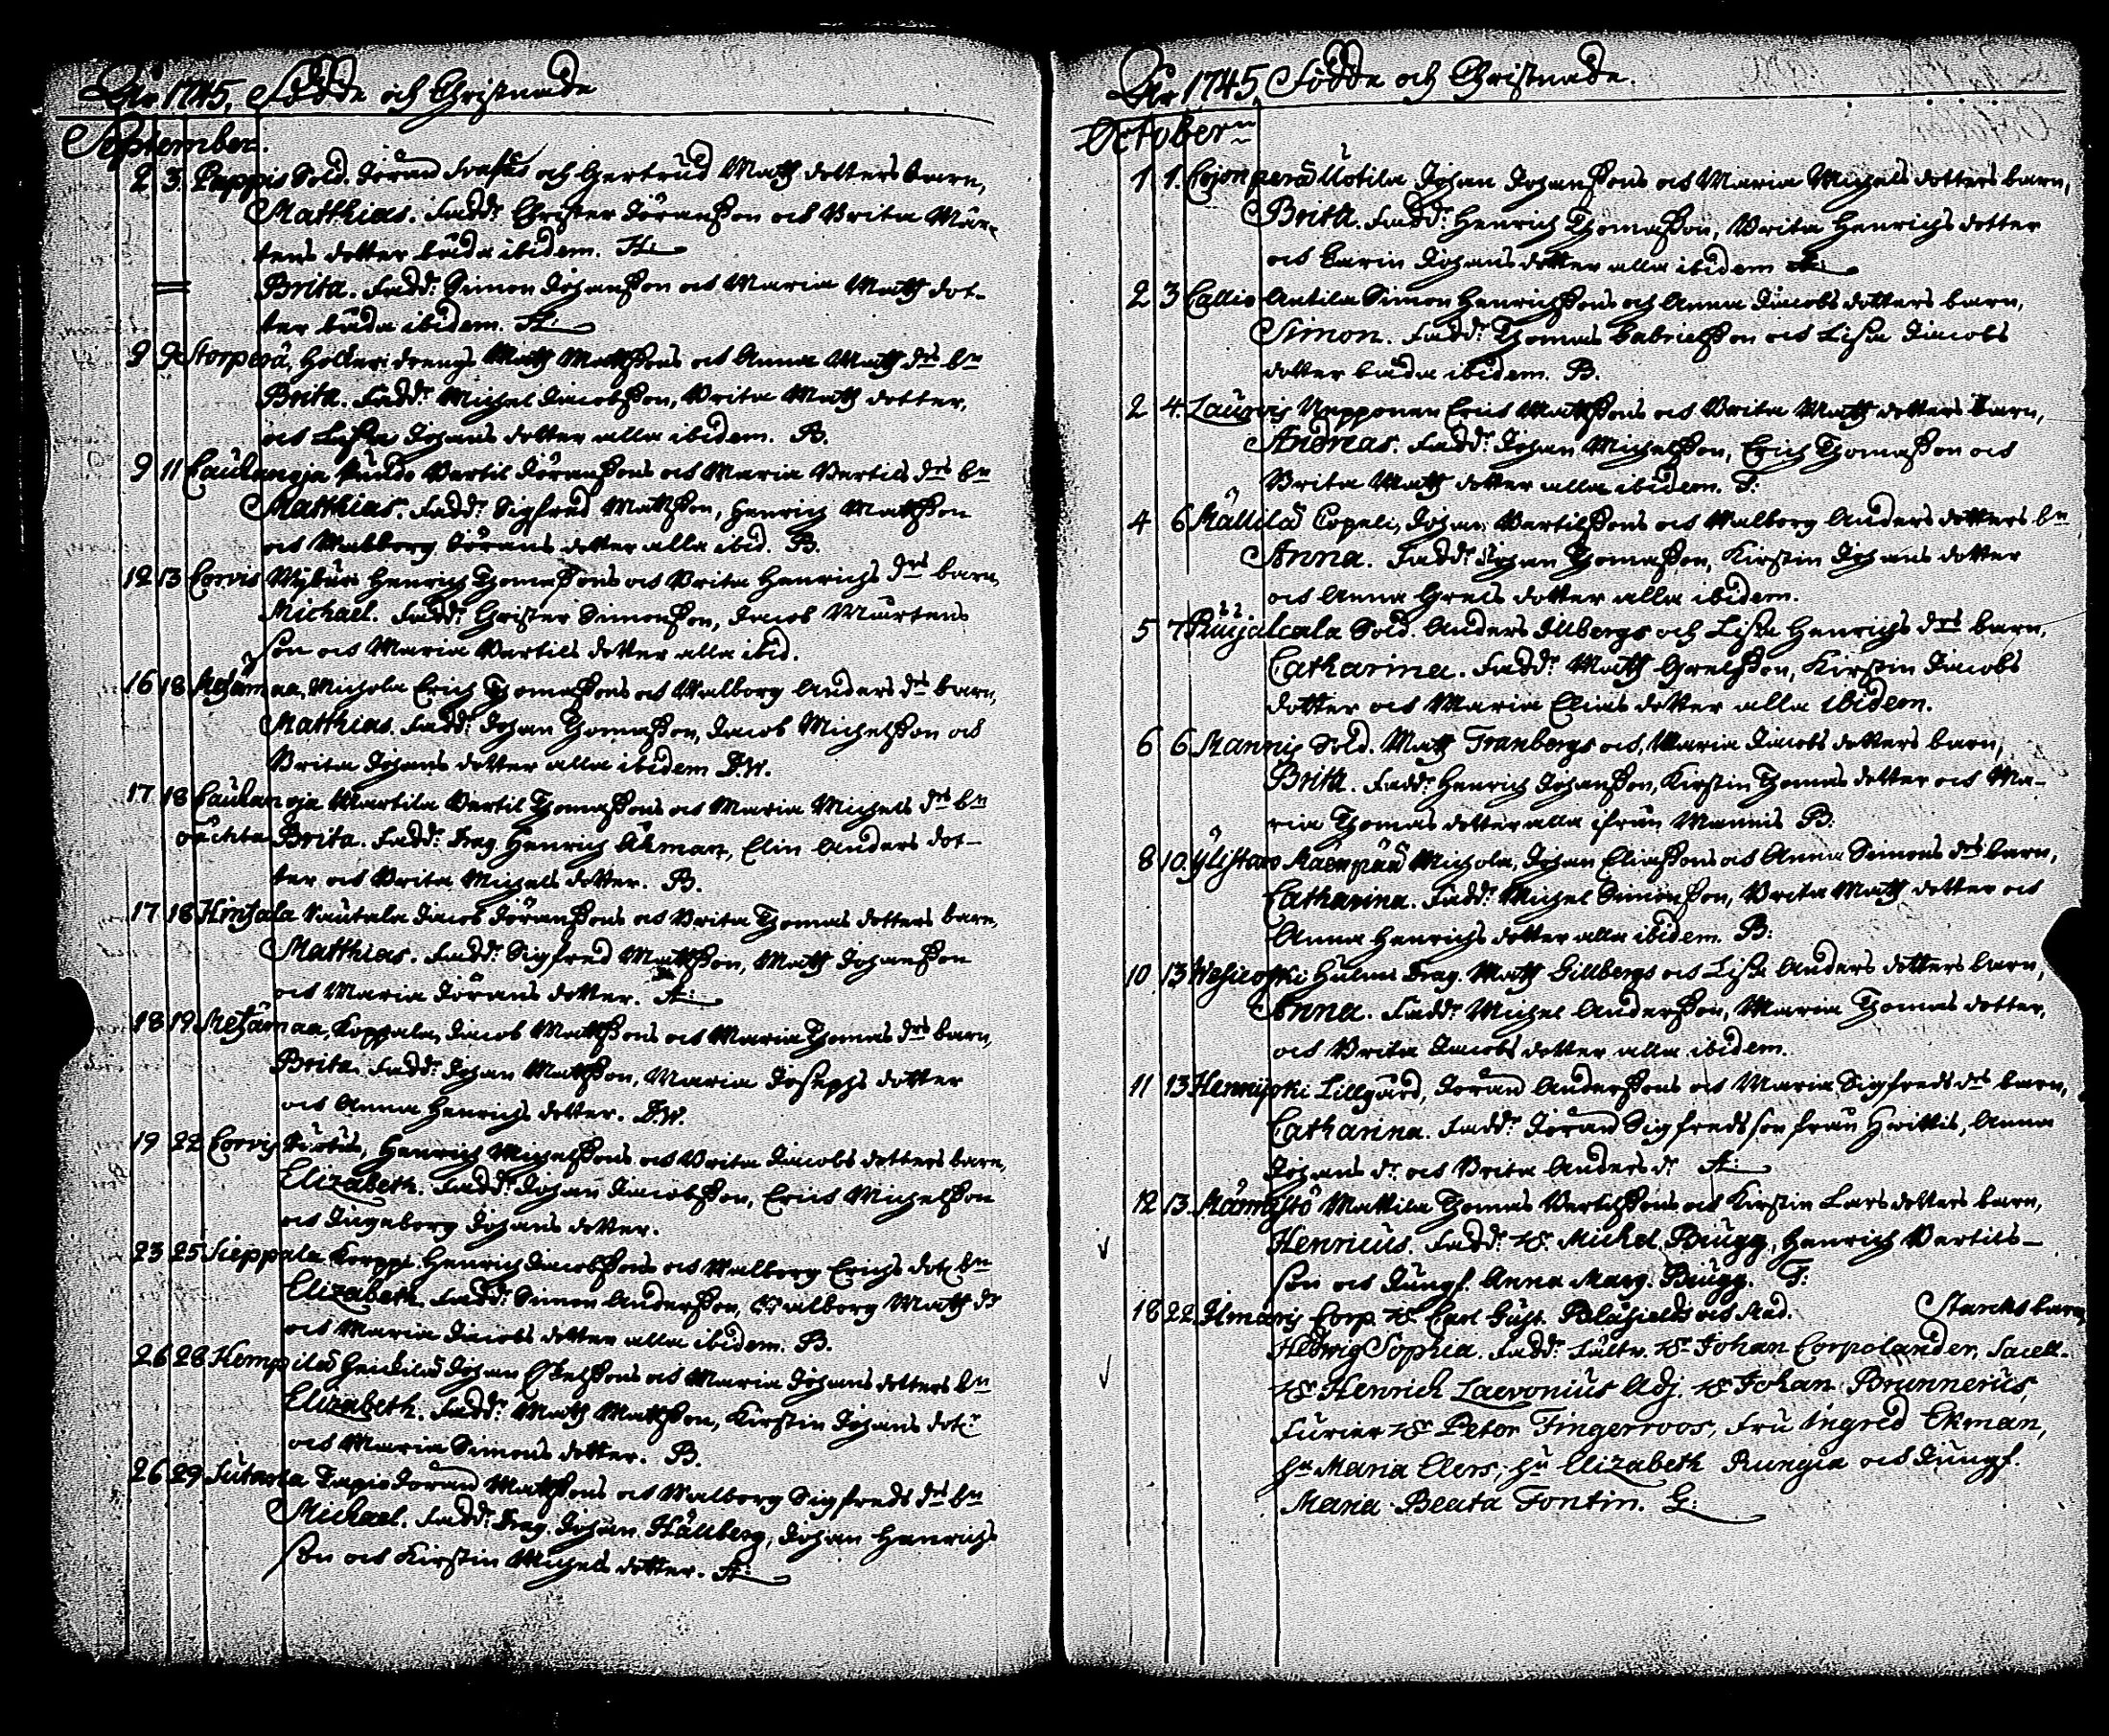 År 1745, Födde och Christnade
September.
2 3. Pappis Sold. Jöran och Gertrud Matth dotters barn,
Matthias. Fadd: Christer Jöransson och Brita Mår-
tens dotter båda ibidem. A:
= Brita. Fadd: Simon Johansson och Maria Matth dot-
ter båda ibidem. A:
9 9 Storperä, drengs Matth Mattssons och Anna Matth drs bn
Brita. Fadd: Michel Jacobsson, Brita Matth dotter,
och Lisa Johans dotter alla ibidem. B.
9 11 Caukaloja Bertil Jöranssons och Maria Bertils drs bn
Matthias. Fadd: Sigfred Mattsson, Henrich Mattsson
och Walborg Jörans dotter alla ibid. B.
12 13 Corvis Henrich Thomassons och Brita Henrichs drs barn,
Michael. Fadd: Christer Simonsson, Jacob Mårtens
son och Maria Bertils dotter alla ibid.
16 18 Metämaa, Michola Erich Thomassons och Walborg Anders drs barn,
Matthias. Fadd: Johan Thomasson, Jacob Michelsson och
Brita Johans dotter alla ibidem D.W.
17 18 Martila Bertil Thomassons och Maria Michels drs bn
oächta Brita. Fadd: Drag. Henrich Åkman, Elin Anders dot-
ter och Brita Michels dotter. B.
17 18 Hinsala Sautala Jacob Jöranssons och Brita Thomas dotters barn,
Matthias. Fadd: Sigfred Mattsson, Matth Johansson
och Maria Jörans dotter. A:
18 19 Metämaa, Koppala, Jacob Mattssons och Maria Thomas drs barn,
Brita. Fadd: Johan Mattsson, Maria Josephs dotter
och Anna Henrichs dotter. D.W.
19 22 Corvis Henrich Michelssons och Brita Jacobs dotters barn,
Elizabeth. Fadd: Johan Jacobsson, Erich Michelsson
och Ingeborg Johans dotter.
23 25 Sieppala Korppi Henrich Jacobssons och Walborg Erichs dot. bn
Elizabeth. Fadd: Simon Andersson, Walborg Matth dr
och Maria Jacobs dotter alla ibidem. B.
26 28 Kempilä Johan Eskelssons och Maria Johans dotters bn
Elizabeth. Fadd: Matth Mattsson, Kirstin Johans dotr
och Maria Simons dotter. B.
26 29 Sutasta Tapio Jöran Mattssons och Walborg Sigfreds drs bn
Michael. Fadd: Drag. Johan Hållberg, Johan Henrichs
son och Kirstin Michels dotter. A:
År 1745 Födde och Christnade.
October
1 1. Cojonperä Uotila Johan Johanssons och Maria Michels dotters barn,
Brita. Fadd: Henrich Thomasson, Brita Henrichs dotter
och Carin Johans dotter alla ibidem A:
2 3 Callio Antila Simon Henrichssons och Anna Jacobs dotters barn,
Simon. Fadd: Thomas Gabrielsson och Lisa Jacobs
dotter båda ibidem. B.
2 4. Laurois Uupponen Erich Mattssons och Brita Matth dotters barn,
Andreas. Fadd: Johan Michelsson, Erich Thomasson och
Brita Matth dotter alla ibidem. F:
4 6 Mällilä Copeli, Johan Bertilssons och Walborg Anders dotters bn
Anna. Fadd: Johan Thomasson, Kirstin Johans dotter
och Anna Grels dotter alla ibidem.
5 7 Sold. Anders Illbergs och Lisa Henrichs drs barn,
Catharina. Fadd: Matth Grelsson, Kirstin Jacobs
dotter och Maria Elias dotter alla ibidem.
6 6 Mannis Sold. Matth Tranbergs och Maria Jacobs dotters barn,
Brita. Fadd: Henrich Johansson, Kirstin Thomas dotter och Ma-
ria Thomas dotter alla ifrån Mannis B:
8 10. Ylistaro Mäenpää Michola, Johan Eliassons och Anna Simons drs barn,
Catharina. Fadd: Michel Simonsson, Brita Matth dotter och
Anna Henrichs dotter alla ibidem. B:
10 13 Wesicoski Drag. Matth Gillbergs och Lisa Anders dotters barn,
Anna. Fadd: Michel Andersson, Maria Thomas dotter,
och Brita Jacobs dotter alla ibidem.
11 13 Hennijoki Lillgård, Jöran Anderssons och Maria Sigfreds drs barn,
Catharina. Fadd: Jöran Sigfreds son från Hvittis, Anna
Johans dr och Brita Anders dr A:
12 13. Männistö Mattila Thomas Bertilssons och Kirstin Lars dotters barn,
Henricus. Fadd: Hr Michel Brugg, Henrich Bertils-
son och Jungf. Anna Marg. Brugg. F:
18 22. Ilmaris Corp. Hr Carl Gust. Blåfields och Mad. Starcks barn
Hedwig Sophia. Fadd: Fältv. Hr Johan Corpolander, Sacell.
Hr Henrich Laevonius Adj. Hr Johan Brunnerus,
Furier Hr Peter Fingerroos, Fru Ingred Ekman,
hu Maria Elers, hu Elizabeth Rungia och Jungf.
Maria Beata Fontin. G: